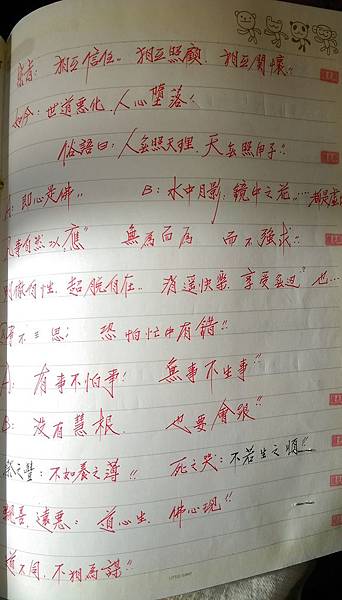 宗旨：相互信任。相互照顧，相互關懷!!
如今：世道惡化，人心墮落!!
俗語曰：人無照天理，天無照甲子!!
A：即心是佛。。 B：水中月影，鏡中之花……都是虛
凡事自然以應” 無為而為 而不強求!!
明心見性，超脫自在。。逍遙快樂，享受 也…
事不三思； 恐怕忙中有錯!!
A：有事不怕事! 無事不生事”
B：沒有慧根， 也要會跟”
祭之豐：不如養之薄!! 死之哭：不若生之順!!
親善，遠惡：道心生，佛心現!!
道不同，不相為謀!!